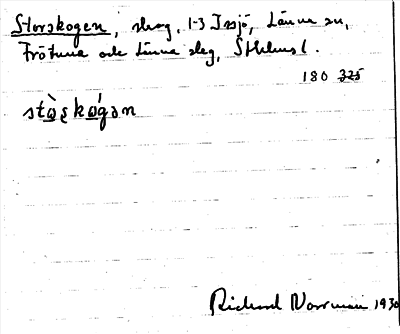 Storskogen, skog, 1-3 Issjö, Länna sn,
Frötuna och Länna slg, Sthlms l.
180 325
stὼʂkωǵən
Richard Norrman 1930